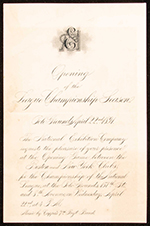 Opening
of the
League Championship Season
Polo Grounds, April 22nd 1891
The National Exhibition Company
requests the pleasure of your presence
at the Opening Game between the
Boston and New York Clubs,
for the Championship of the National
League, at the Polo Grounds 157th St.
and 8th Avenue on Wednesday April
22nd at 4 P.M.